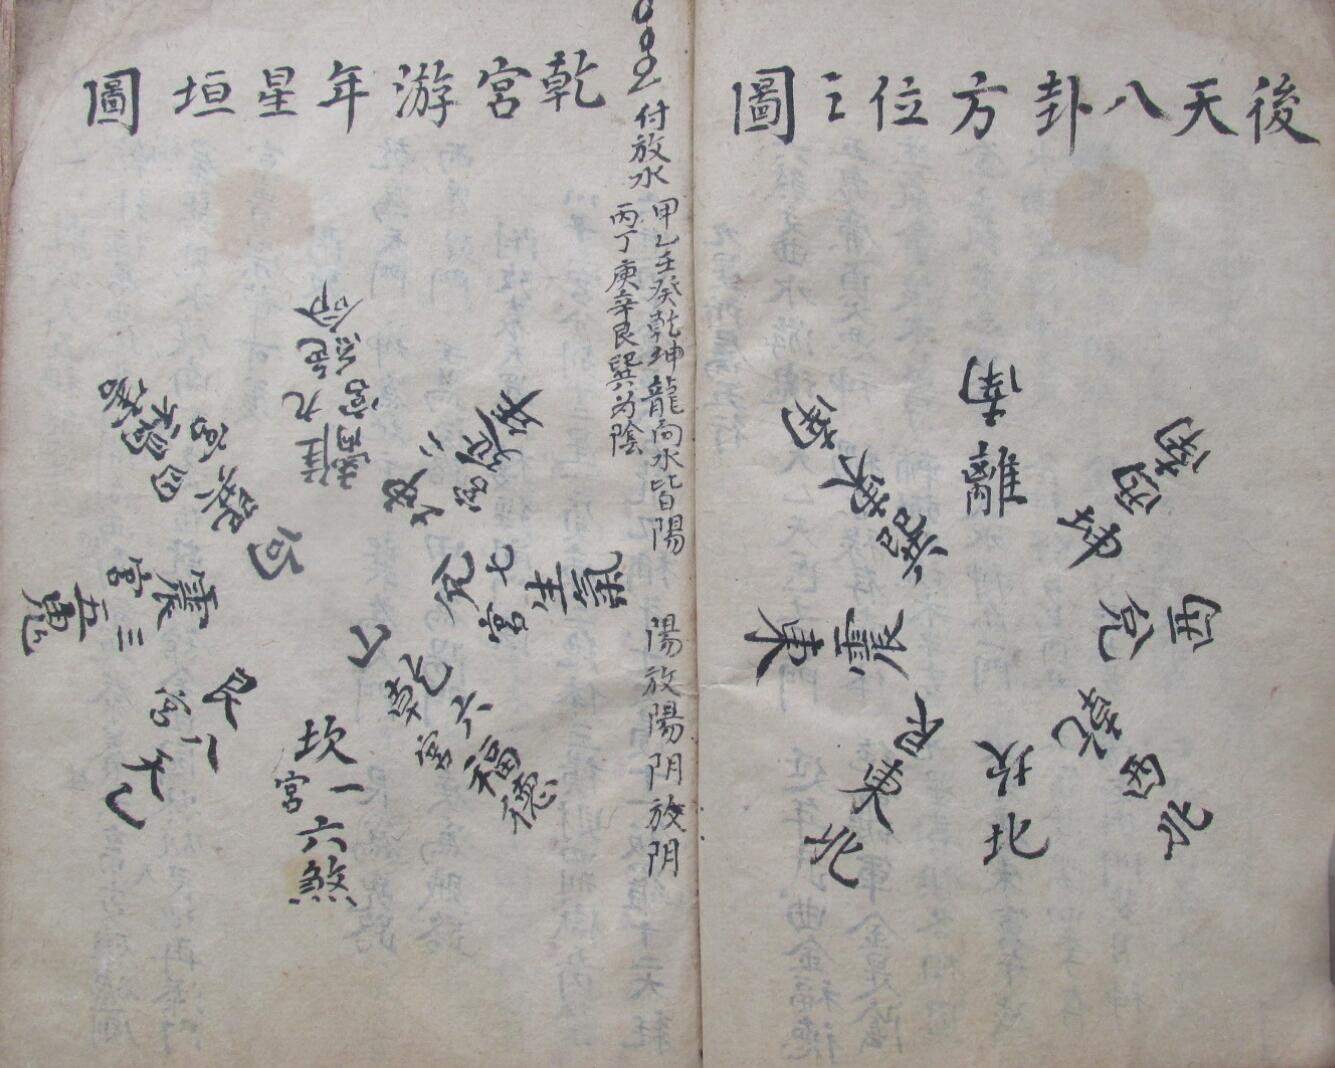 後天八卦方位之圖
南
離
西南
坤
西
兌
西北
乾
北
坎
東北
艮
東
震
東南
巽
付放水
甲乙壬癸乾坤龍向水皆陽
丙丁庚辛艮巽為陰
陽放陽阴放阴
乾宮游年星垣圖
離九
宮
絕命
坤二
宮
延年
兌七
宮
生氣
乾六
宮
福德
坎一
宮
六煞
艮八
宮
天乙
震三
宮
五鬼
巽四
宮
禍害